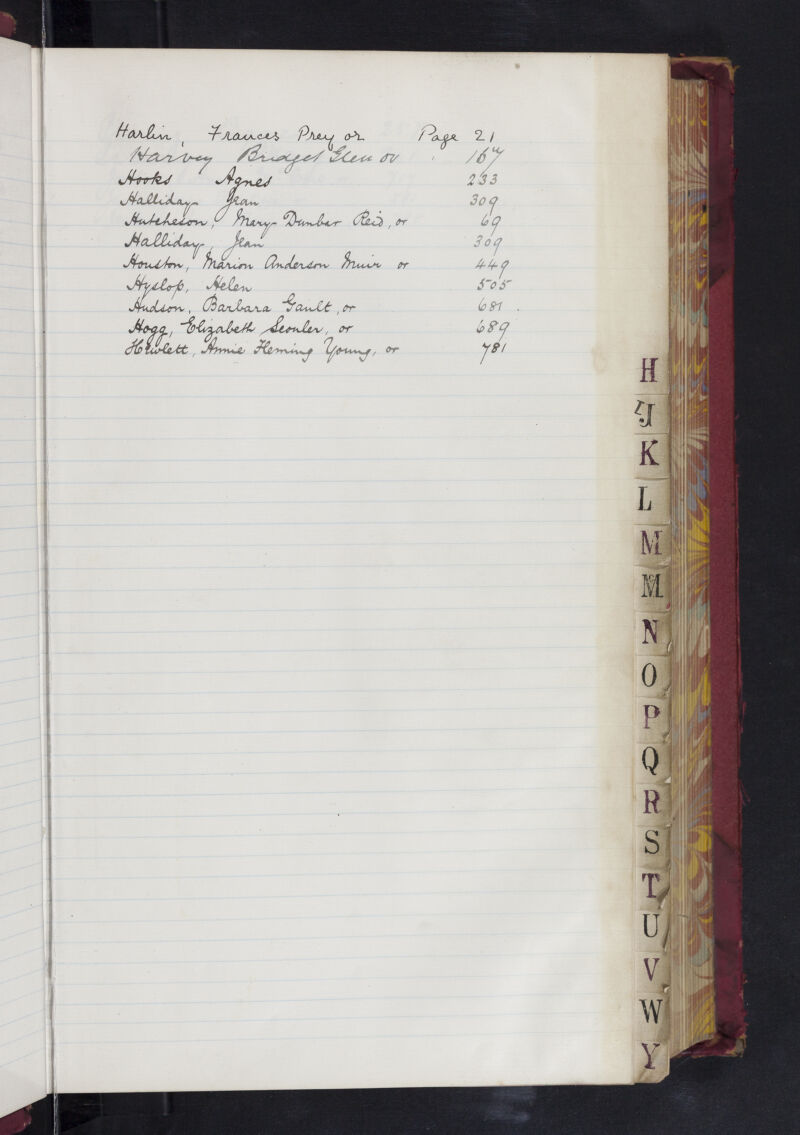 Harlin, Frances Prey or Page 21
Harvey Bridget Glen or 167
Hooks Agnes 233
Halliday Jean 309
Hutcheson, Mary Dunbar Reid, or 69
Halliday, Jean 309
Houston, Marion Anderson Muir or 449
Hyslop, Helen 505
Hudson, Barbara Gault, or 681
Hogg, Elizabeth Scouler, or 689
Hewlett, Annie Fleming Young, or 781
H
IJ
K
L
M
Mc
N
O
P
Q
R
S
T
U
V
W
Y